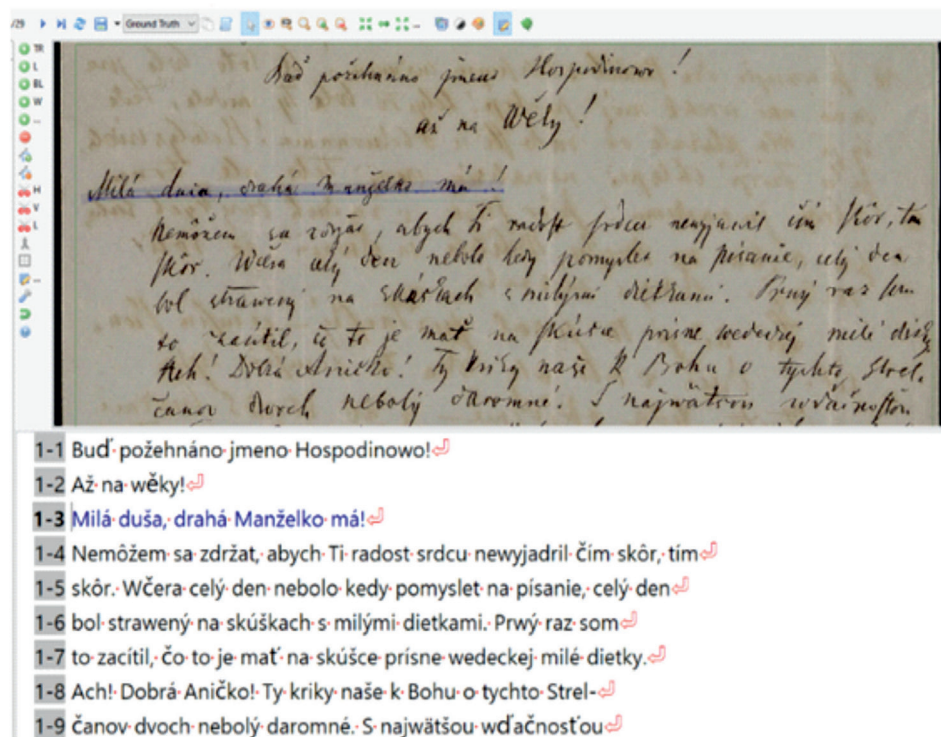 /29 Ground Truth
TR
L
BL
W
...
H
V
L
Buď požehnáno jmeno Hospodinowo!
až na Wěky!
Milá duša, drahá Manželko má!
Nemôžem sa zdržat, abych Ti radost srdcu newyjavil čím skôr, tím
skôr. Wčera celý den nebolo kedy pomyslet na písanie, celý den
bol strawený na skúškach s milými dietkami. Prwý raz som
to zacítil, čo to je mať na skúsce prísne wedeckej milé dietky
Ach! Dobrá Aničko! Ty kriky naše k Bohu o tychto Strel-
čanov dvoch nebolý daromné. S najwätšou wďačnosťou
1-1 Buď požehnáno jmeno Hospodinowo!
1-2 Až na wěky!
1-3 Milá duša, drahá Manželko má!
1-4 Nemôžem sa zdržat, abych Ti radost srdcu newyjadril čím skôr, tím
1-5 skôr. Wčera celý den nebolo kedy pomyslet na písanie, celý den
1-6 bol strawený na skúškach s milými dietkami. Prwý raz som
1-7 to zacítil, čo to je mať na skúšce prísne wedeckej milé dietky.
1-8 Ach! Dobrá Aničko! Ty kriky naše k Bohu o tychto Strel-
1-9 čanov dvoch nebolý daromné. S najwätšou wďačnosťou